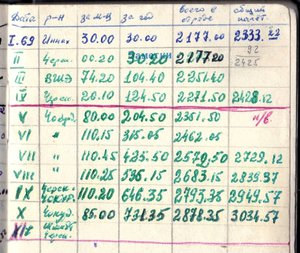 Дата р-н за м-ц за год всего в отряде общий налет
I.69 Иннах 30.00 30.00 2177.00 2333.
II Черск. 00.20 30.20 2177.20 92
2425
III ВЧЭ 74.20 104.40 2251.40
IV Черск. 20.10 124.50 2271.50 2428.12
V Чокурд. 80.00 204.50 2351.50 н/в.
VI " 110.15 315.05 2462.05
VII " 110.45 425.50 2572.50 2729.12
VIII " 110.25 536.15 2683.15 2839.37
IX Черск. 110.20 646.35 2793.35 2949.57
X Чокурд. 85.00 731.35 2878.35 3034.57
XII
Черск.